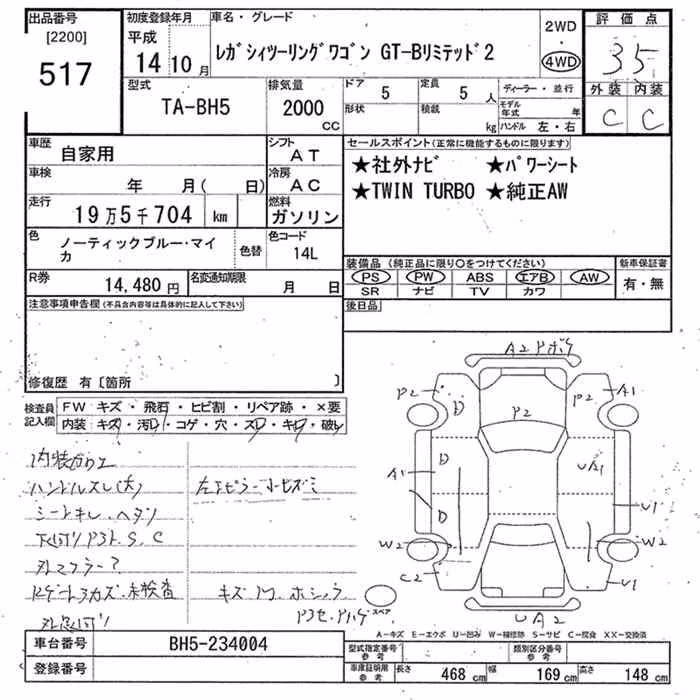 出品番号 初度登録年月 車名・グレード 2WD 評価点
[2200] 平成 ・
517 14年10月 レガシィツーリングワゴン GT-Bリミテッド2 4WD 35
型式 排気量 ドア 5 定員 5人 ディーラー・並行 外装 内装
TA-BH5 2000cc 形状 積載 kg モデル年式 年 C C
ハンドル 左・右
車歴 自家用 シフト AT セールスポイント(正常に機能するものに限ります)
車検 年 月( 日) 冷房 AC ★社外ナビ ★パワーシート
走行 19万5千704 km 燃料 ガソリン ★TWIN TURBO ★純正AW
色 ノーティックブルー・マイカ 色替 色コード 14L
装備品(純正品に限り○をつけてください) 新車保証書
R券 14,480円 名変通知期限 月 日 PS PW ABS エアB AW 有・無
SR ナビ TV カワ
注意事項申告欄(不具合内容等は具体的に記入して下さい) 後日品
修復歴 有〔箇所 〕
検査員記入欄 FW キズ・飛石・ヒビ割・リペア跡・×要
内装 キズ・汚レ・コゲ・穴・スレ・キレ・破レ
A2 P2 D P2 P2 A1
A1 D D UA1 U1
W2 W2
C2 U1
UA2
スペア
ハンドルスレ(大)
シートキレ、ヘタリ
S.C
外マフラー?
未検査
A-キズ E-エクボ U-凹み W-補修跡 S-サビ C-腐食 XX-交換済
車台番号 BH5-234004 型式指定番号 参考 類別区分番号 参考
登録番号 車庫証明用 参考 長さ 468cm 幅 169cm 高さ 148cm